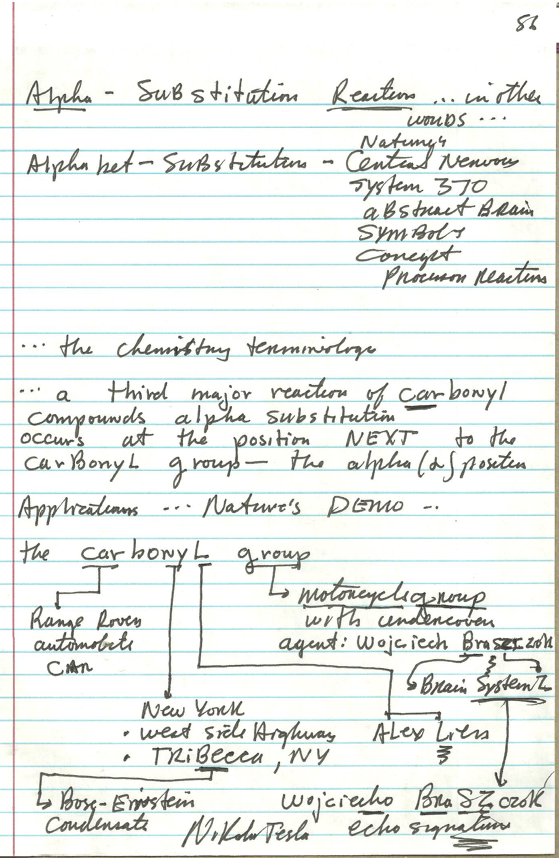 86
Alpha - SuBstitution Reaction ... in other
words ...
Nature's
Alphabet - Substitution - Central Nervous
System 370
aBstract Brain
SYMBols
Concept
Processor Reaction
... the chemistry terminology
... a third major reaction of carbonyl
compounds alpha substitution
occurs at the position NEXT to the
carBonyL group — the alpha (α) position
Applications ... Nature's DEMO ...
the carbonyL group
motorcycle group
Range Rover with undercover
automobile agent: Wojciech BraSZczok
CAR
Brain System Z
New York
• West Side Highway Alex Liers
• TRiBecca, NY
Bose-Einstein Wojciecho BraSZczok
Condensate Nikola Tesla echo signature